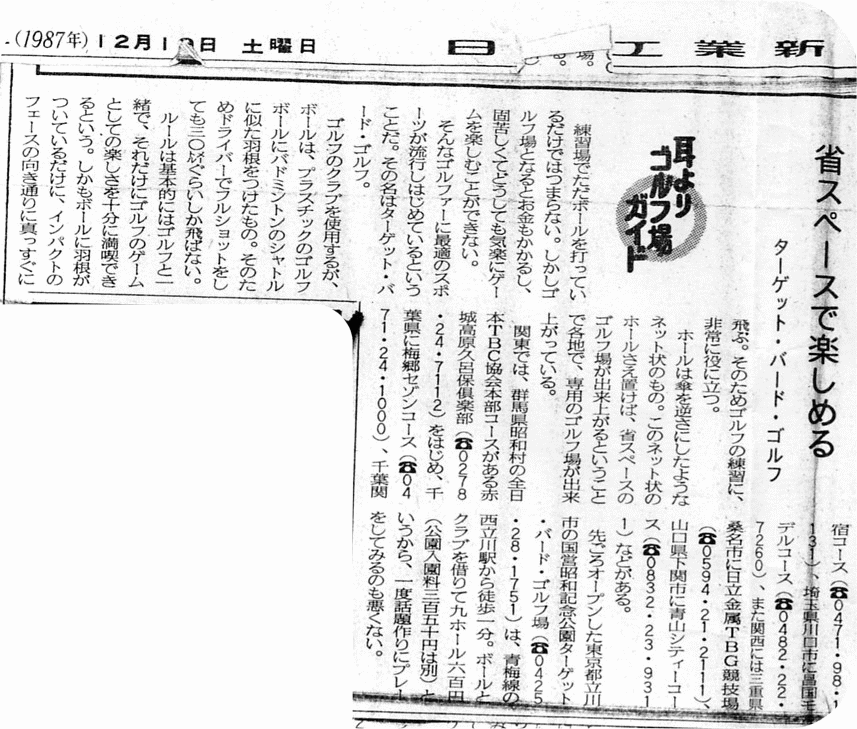 (1987年) 12月1日 土曜日 日 工 業 新
省スペースで楽しめる
ターゲット・バード・ゴルフ
耳より
ゴルフ場
ガイド
練習場でただボールを打ってい
るだけではつまらない。しかしゴ
ルフ場となるとお金もかかるし、
固苦しくてどうしても気楽にゲー
ムを楽しむことができない。
そんなゴルファーに最適のスポ
ーツが流行しはじめているという
ことだ。その名はターゲット・バ
ード・ゴルフ。
ゴルフのクラブを使用するが、
ボールは、プラスチックのゴルフ
ボールにバドミントンのシャトル
に似た羽根をつけたもの。そのた
めドライバーでフルショットをし
ても三〇㍍ぐらいしか飛ばない。
ルールは基本的にはゴルフと一
緒で、それだけにゴルフのゲーム
としての楽しさを十分に満喫でき
るという。しかもボールに羽根が
ついているだけに、インパクトの
フェースの向き通りに真っすぐに
飛ぶ。そのためゴルフの練習に、
非常に役に立つ。
ホールは傘を逆さにしたような
ネット状のもの。このネット状の
ホールさえ置けば、省スペースの
ゴルフ場が出来上がるということ
で各地で、専用のゴルフ場が出来
上がっている。
関東では、群馬県昭和村の全日
本TBC協会本部コースがある赤
城高原久呂保俱楽部(☎0278
・24・7112)をはじめ、千
葉県に梅郷セゾンコース(☎04
71・24・1000)、千葉関
宿コース(☎0471・98・1
131)、埼玉県川口市に島国モ
デルコース(☎0482・22・
7260)、また関西には三重県
桑名市に日立金属TBG競技場
(☎0594・21・2111)、
山口県下関市に青山シティーコー
ス(☎0832・23・931
1)などがある。
先ごろオープンした東京都立川
市の国営昭和記念公園ターゲット
・バード・ゴルフ場(☎0425
・28・1751)は、青梅線の
西立川駅から徒歩一分。ボールと
クラブを借りて九ホール六百円
(公園入園料三百五十円は別)と
いうから、一度話題作りにプレー
をしてみるのも悪くない。